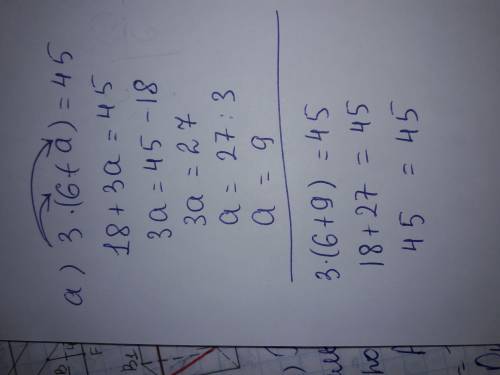 a) 3·(6+a)=45
18+3a=45
3a=45-18
3a=27
a=27:3
a=9
3·(6+9)=45
18+27=45
45=45